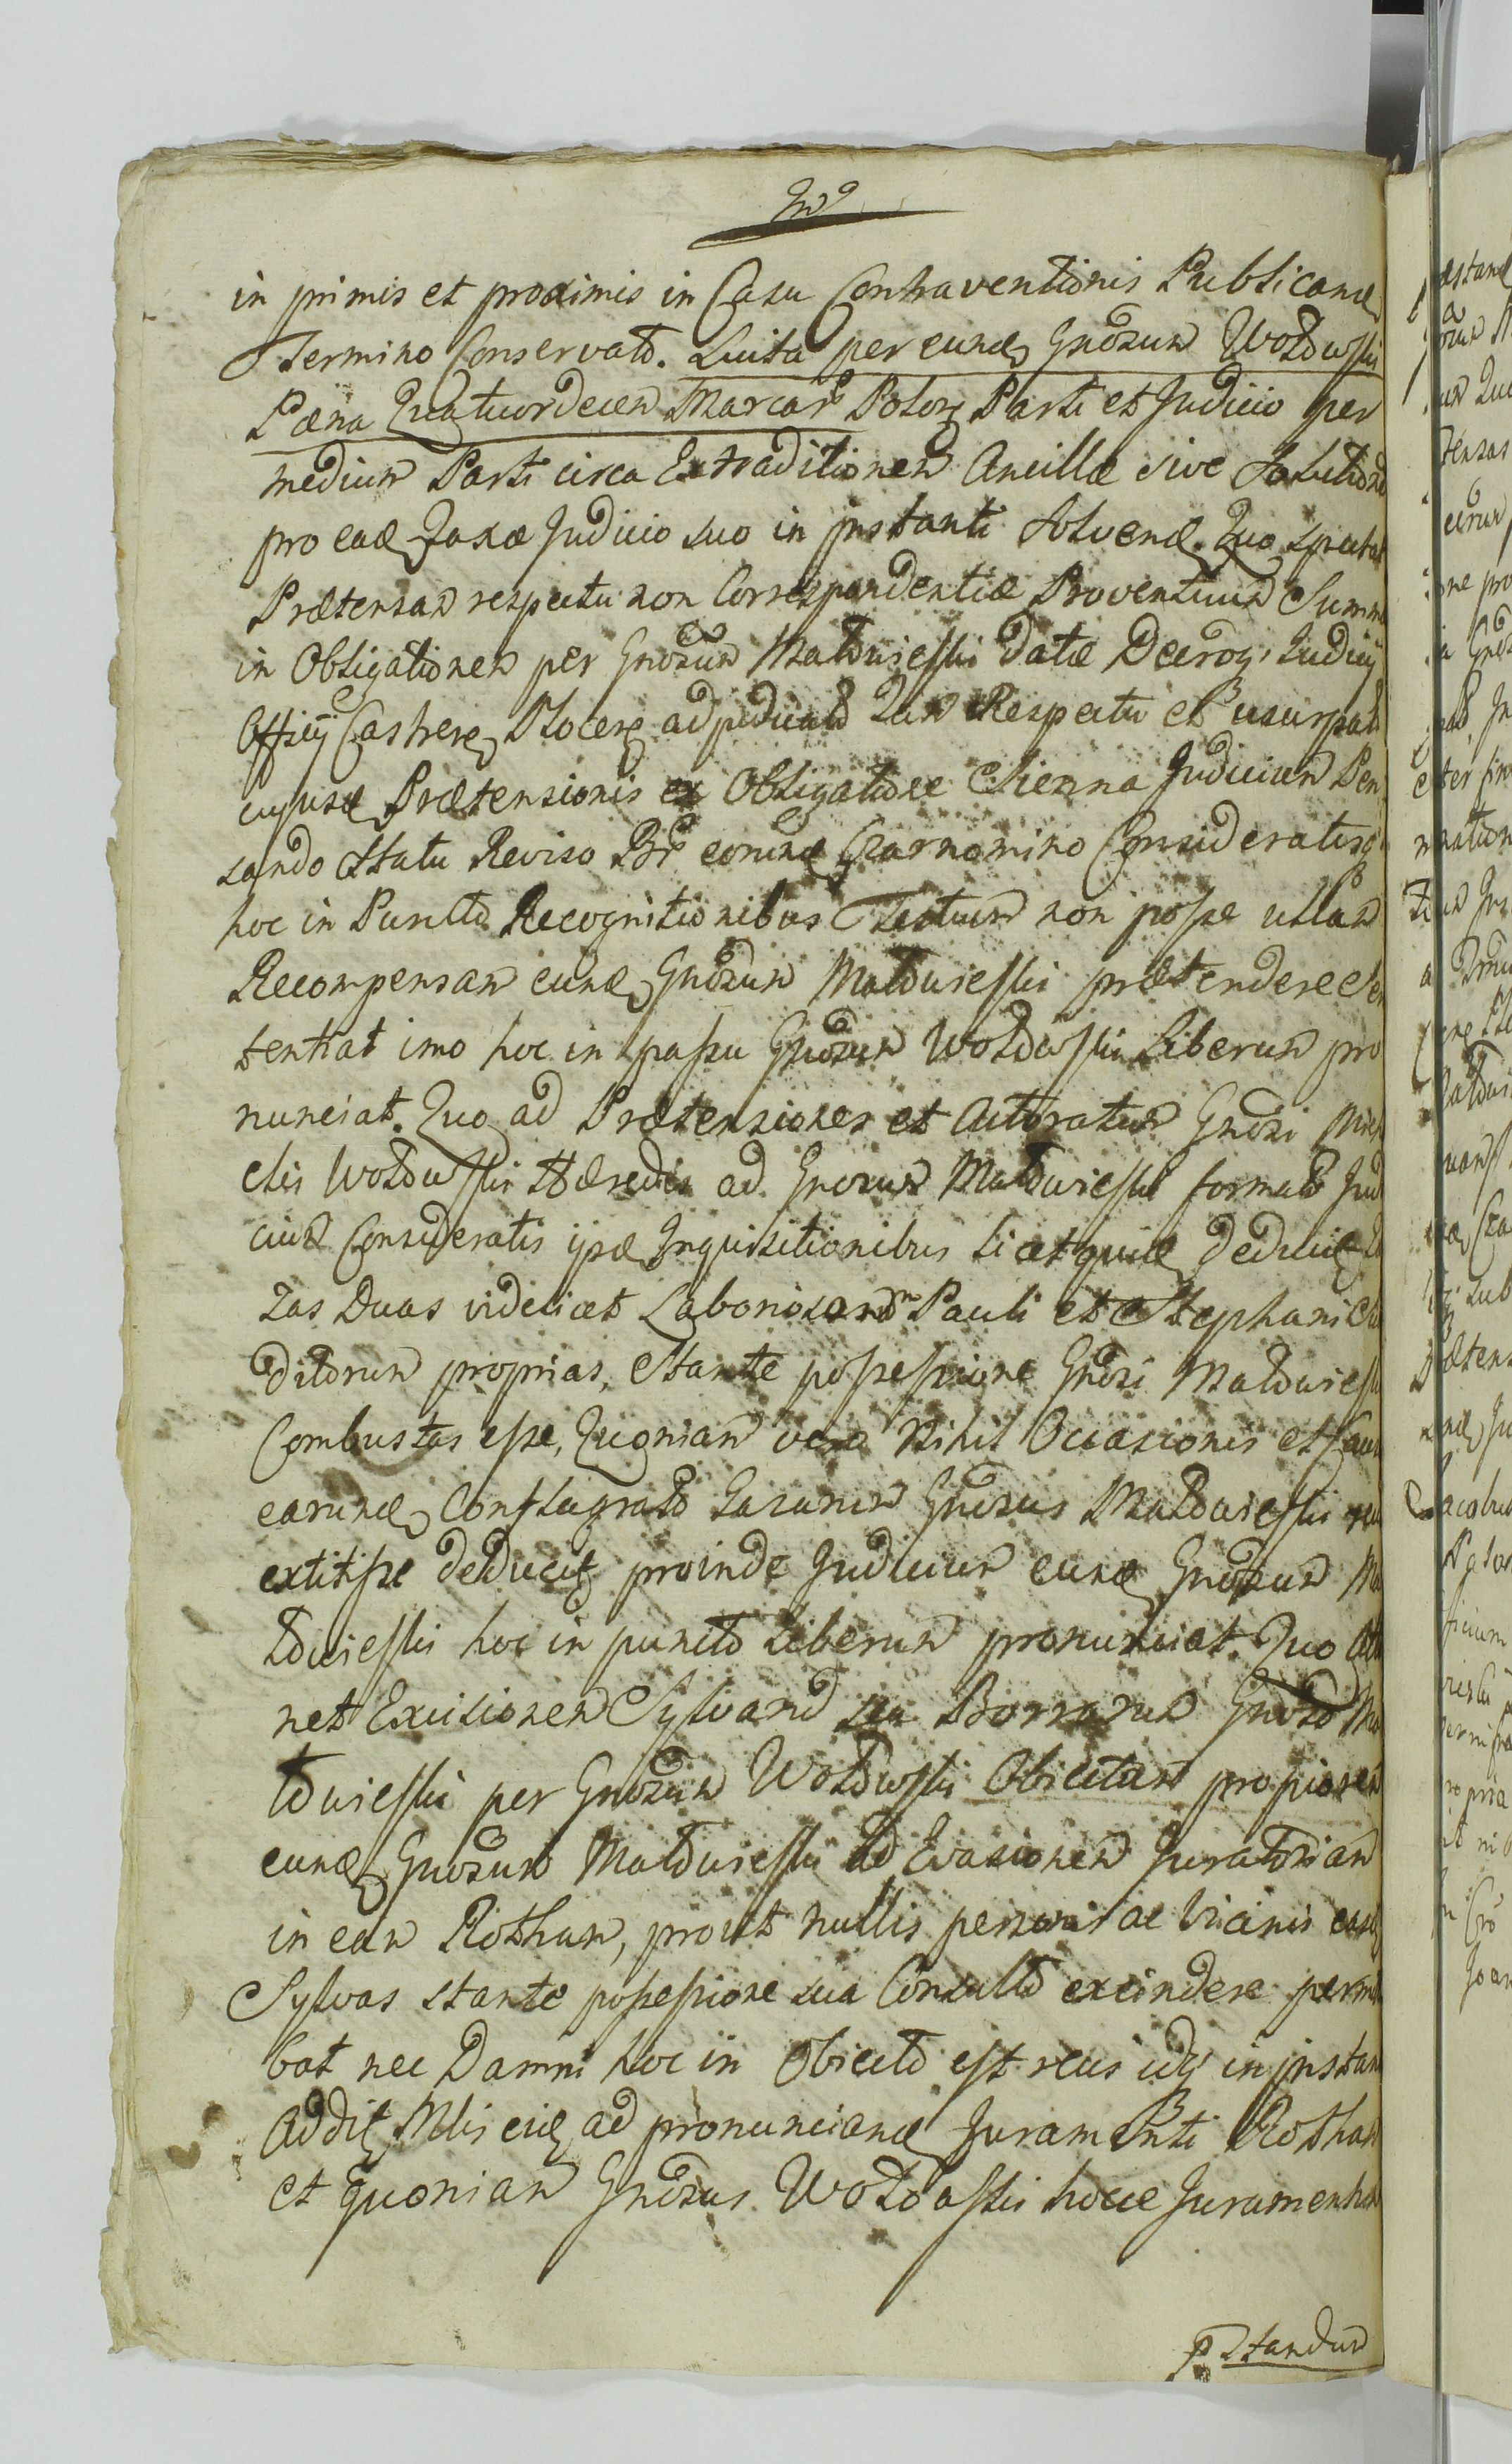 in primis et proximis in Casu Contraventionis Publicand
Termino Conservato. Luita per eund Gnosum Wołdwski
Pæna Quatuordecem Marcar Polon Parti et Judicio per
medium Parti circa Extraditionem Ancillæ sive Solution
pro ead Taxæ Judicio suo in instanti Solvend. Quo spectat
Prætensam respectu non Correspondentiæ Proventuum Summ
in Obligationem per Gnosum Małdwieski Datæ Derog Judicij
Officij Castren Plocen adjudicato Respectu et usurpat
cujusd Prætensionis ex Obligatione Judicium Pen
sando Statu Reviso eorund Czarnomino Consideratisq
hoc in Puncto Recognitionibus Testium non posse ullam
Recompensam eund Gnosum Małdwieski prætendere Sen
tentiat imo hoc in passu Gnosum Wołdwski Liberum pro
nunciat. Quo ad Prætensiones et Actoratum Gnosi Mich
elis Wołdwski Hæredis ad Gnosum Małdwieski format Jud
cium Consideratis ijsd Inquisitionibus licet quid Deduci
zas Duas videlicet Laboriosorum Pauli et Stephani
ditorum proprias, Stante possessione Gnosi Małdwieski
Combustas esse, Quoniam vero Nihil Occasionis et Caus
earund Conflagrato Casarum Gnosus Małdwieski
extitisse Deducit proinde Judicium eund Gnosum Ma
łdwieski hoc in puncto Liberum pronunciat. Quo Atti
net Excisionem Sylvarum seu Borrarum Gnoso Ma
łdwieski per Gnosum Wołdwski Obiectam propiorem
eund Gnosum Małdwieski ad Evasionem Juratoriam
in eam Rotham, prout nullis personis ac Vicinis easd
Sylvas stante possessione sua Consulto excindere permit
bat nec Damni hoc in Obiecto est reus idq in instan
Addit Mlis eid ad pronunciand Juramenti Rotham
et quoniam Gnosus Wołdwski hocce Juramentum
pstandum